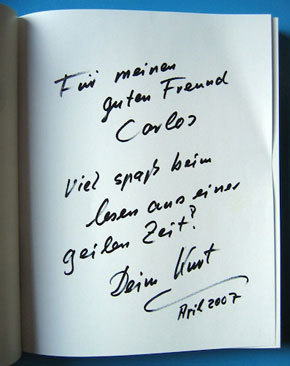 Für meinen
guten Freund
Carlos
Viel spaß beim
lesen aus einer
geilen Zeit?
Dein Kurt
April 2007